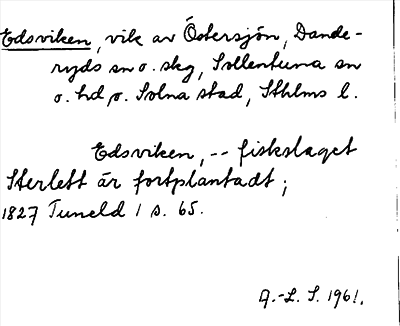 Edsviken, vik av Östersjön, Dande-
ryds sn o. skg, Sollentuna sn
o. hd o. Solna stad, Sthlms l.
Edsviken, -- fiskslaget
Sterlett är fortplantadt;
1827 Tuneld 1 s. 65.
A.-L. S. 1961.